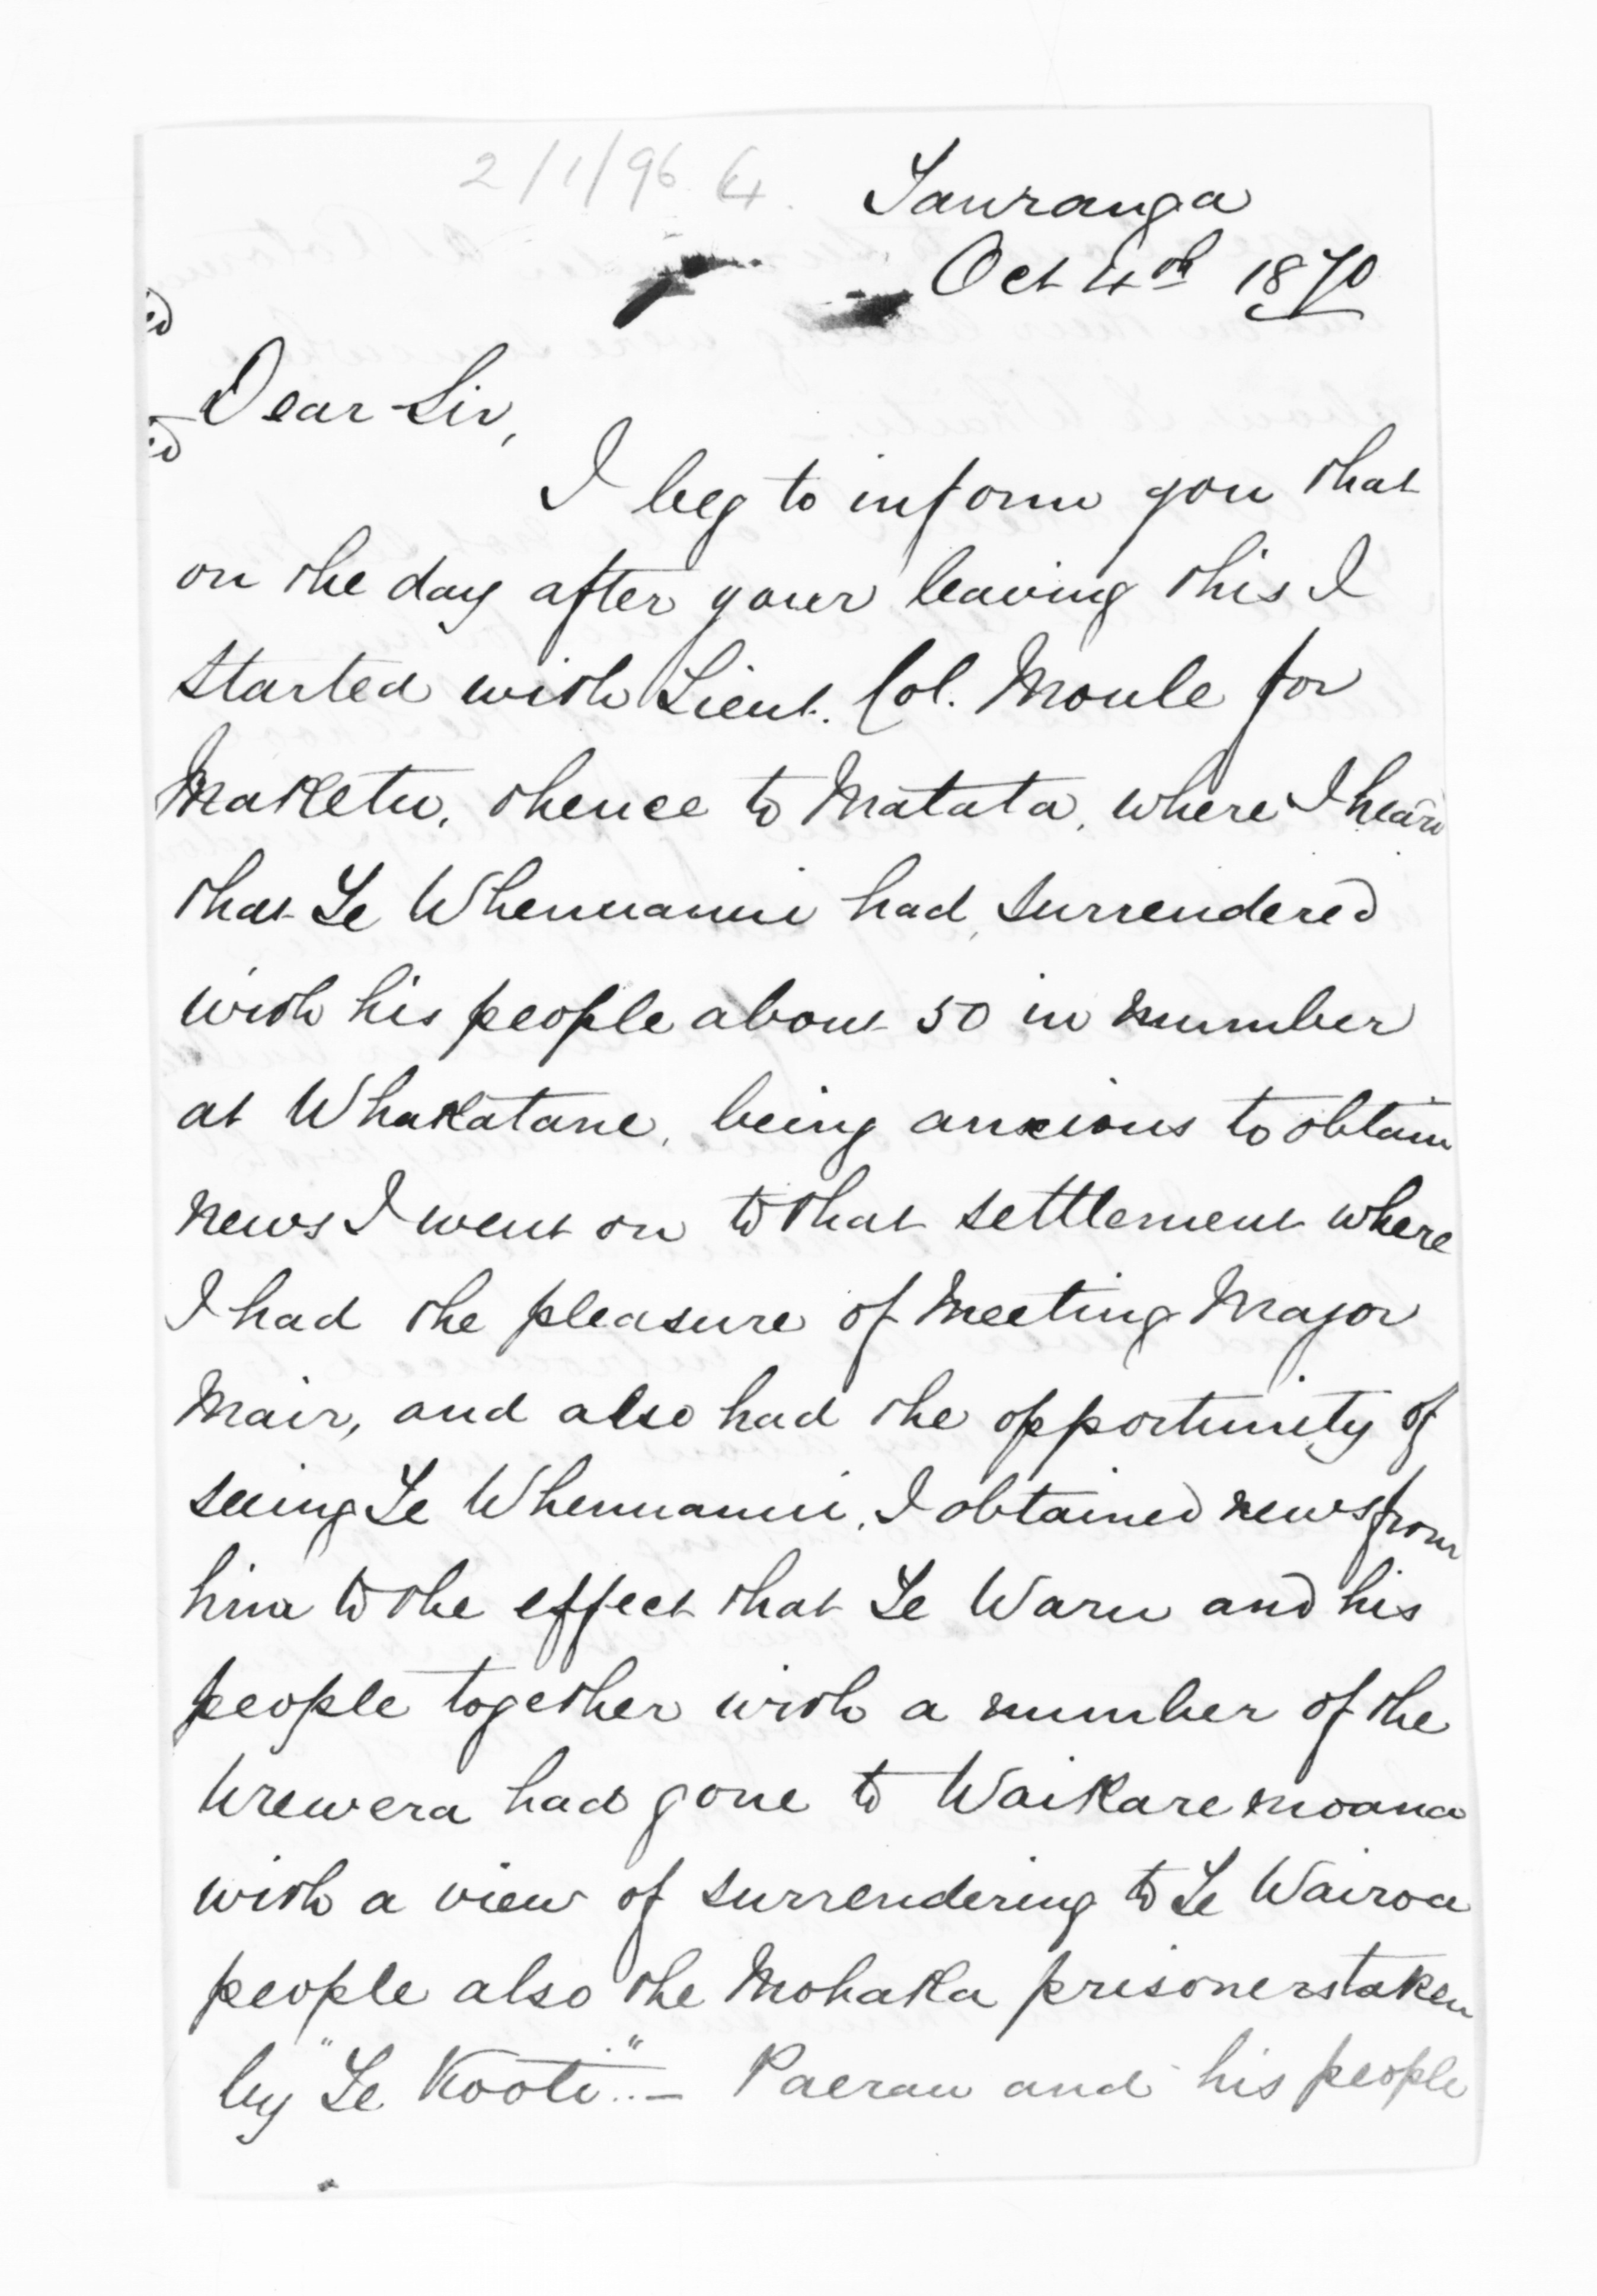 2/1/96
Tauranga
Oct 4th 1870
Dear Sir,
I beg to inform you that
on the day after your leaving this I
started with Lieut. Col. Moule for
Maketu, thence to Matata, where I heard
that Te Whenuanui had surrendered
with his people about 50 in number
at Whakatane, being anxious to obtain
news I went on to that settlement where
I had the pleasure of meeting Major
Mair, and also had the opportunity of
seeing Te Whenuanui, I obtained news from
him to the effect that Te Waru and his
people together with a number of the
Urewera had gone to Waikare moana
with a view of surrendering to Te Wairoa
people also the Mohaka prisoners taken
by "Te Kooti".— Paerau and his people